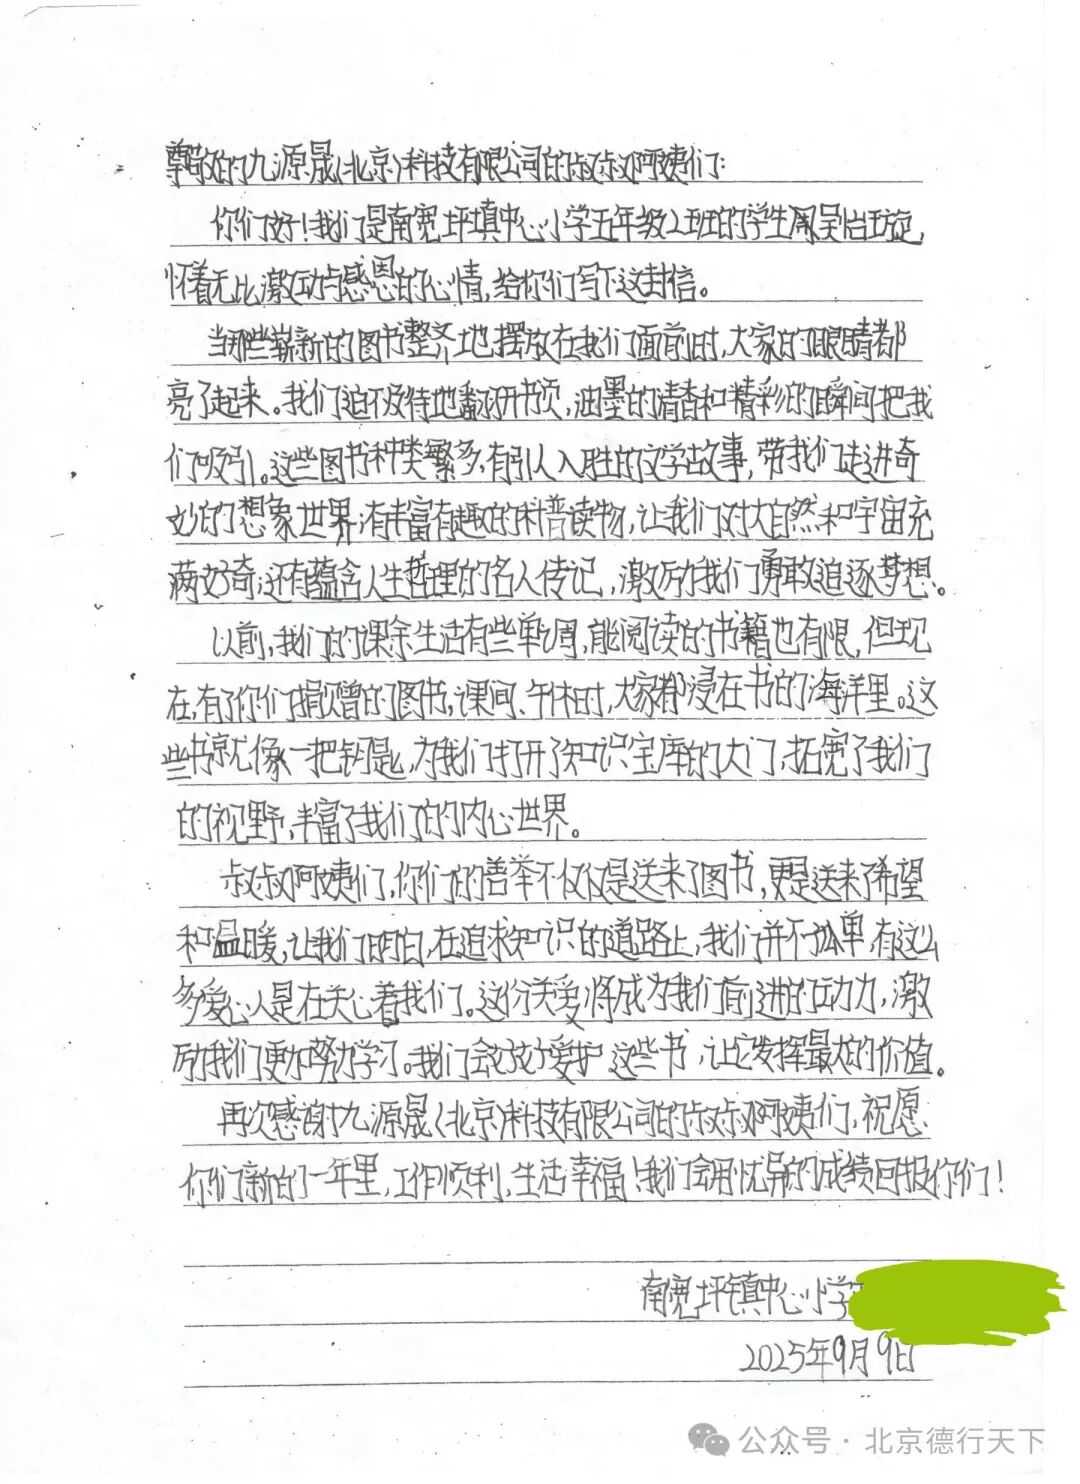 尊敬的九源晟(北京)科技有限公司的叔叔阿姨们:
你们好!我们是南宽坪镇中心小学五年级2班的学生周昊怡琁,
怀着无比激动与感恩的心情,给你们写下这封信。
当那些崭新的图书整齐地摆放在我们面前时,大家的眼睛都
亮了起来。我们迫不及待地翻开书页,油墨的清香和精彩的瞬间把我
们吸引。这些图书种类繁多,有引人入胜的文学故事,带我们走进奇
妙的想象世界;有丰富有趣的科普读物,让我们对大自然和宇宙充
满好奇;还有蕴含人生哲理的名人传记,激励我们勇敢追逐梦想。
以前,我们的课余生活有些单调,能阅读的书籍也有限,但现
在,有了你们捐赠的图书,课间、午休时,大家都浸在书的海洋里。这
些书就像一把钥匙,为我们打开了知识宝库的大门,拓宽了我们
的视野,丰富了我们的内心世界。
叔叔阿姨们,你们的善举不仅仅是送来了图书,更是送来了希望
和温暖,让我们明白,在追求知识的道路上,我们并不孤单,有这么
多爱心人是在关心着我们。这份关爱将成为我们前进的动力,激
励我们更加努力学习。我们会好好爱护这些书,让它发挥最大的价值。
再次感谢九源晟(北京)科技有限公司的叔叔阿姨们,祝愿
你们新的一年里,工作顺利,生活幸福!我们会用优异的成绩回报你们!
南宽坪镇中心小学
2025年9月9日
公众号·北京德行天下